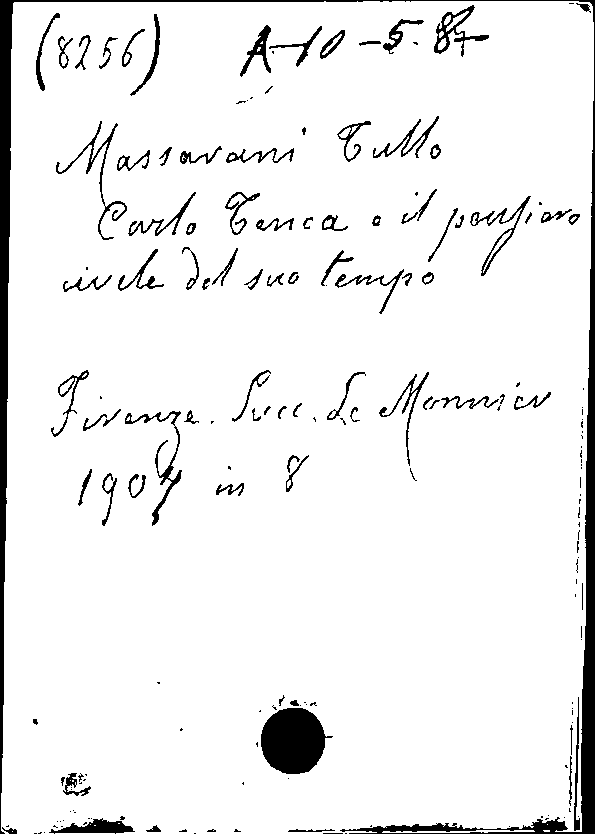 (8256) A-10-5.87
Massarani Tullo
Carlo Tenca e il pensiero
civile del suo tempo
Firenze. Succ. Le Monnier
1907 in 8